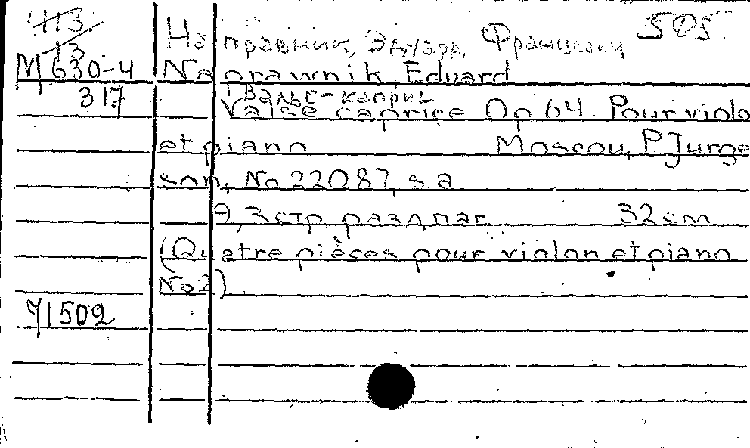 113
13
Направник, Эдуард Францевич 505
М 630-4 Naprawnik, Eduard
317 Вальс-каприс
Valse caprice Op 64. Pour violo
et piano Moscou, P. Jurge
son, No 22087, s.a.
9, 3 стр. разд. паг. 32 cm
(Quatre pièces pour violon et piano
No 2)
71502